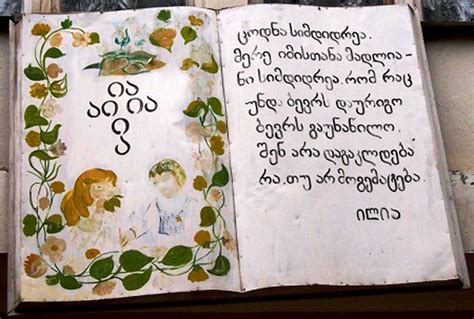 ია
აი ია
ა
ცოდნა სიმდიდრეა.
მერე იმისთანა მადლია-
ნი სიმდიდრეა, რომ რაც
უნდ. ბევრს დაურიგო
ბევრს გაუნაწილო.
შენ არა დაგაკლდება
რა, თუ არ მოგემატება.
ილია